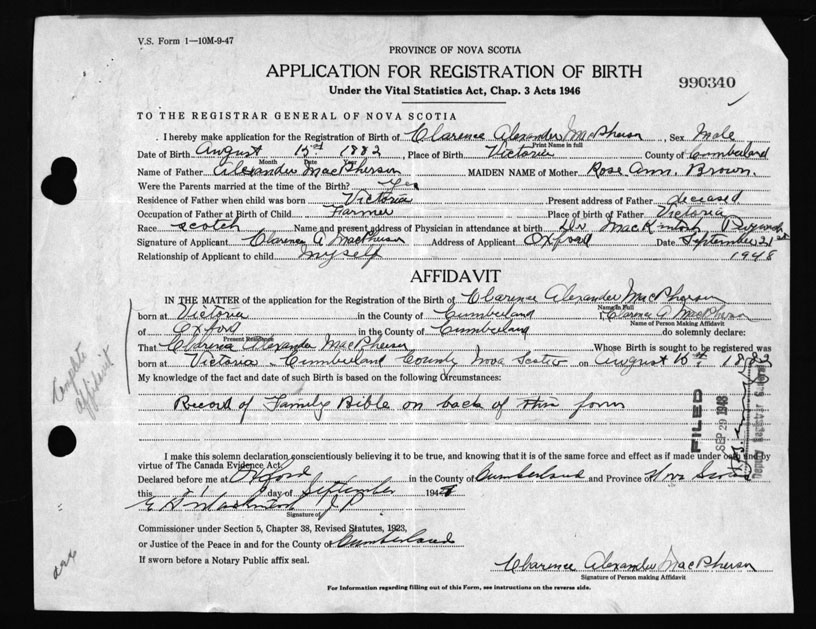 V.S. Form 1—10M-9-47
PROVINCE OF NOVA SCOTIA
APPLICATION FOR REGISTRATION OF BIRTH
990340
Under the Vital Statistics Act, Chap. 3 Acts 1946
TO THE REGISTRAR GENERAL OF NOVA SCOTIA
I hereby make application for the Registration of Birth of Clarence Alexander MacPherson, Sex Male
Print Name in full
Date of Birth August 15th 1882, Place of Birth Victoria County of Cumberland
Month Date
Name of Father Alexander MacPherson MAIDEN NAME of Mother Rose Ann. Brown.
Were the Parents married at the time of the Birth? Yes
Residence of Father when child was born Victoria Present address of Father deceased
Occupation of Father at Birth of Child Farmer Place of birth of Father Victoria
Race scotch Name and present address of Physician in attendance at birth Dr MacKintosh Pugwash
Signature of Applicant Clarence A MacPherson Address of Applicant Oxford Date September 21st
Relationship of Applicant to child myself 1948
AFFIDAVIT
IN THE MATTER of the application for the Registration of the Birth of Clarence Alexander MacPherson
Name in Full
born at Victoria in the County of Cumberland I, Clarence A MacPherson
Name of Person Making Affidavit
of Oxford in the County of Cumberland do solemnly declare:
Present Residence
That Clarence Alexander MacPherson Whose Birth is sought to be registered was
born at Victoria Cumberland County Nova Scotia on August 15th 1882
My knowledge of the fact and date of such Birth is based on the following Circumstances:
Record of Family Bible on back of this form
FILED
SEP 29 1948
I make this solemn declaration conscientiously believing it to be true, and knowing that it is of the same force and effect as if made under oath and by
virtue of The Canada Evidence Act.
Declared before me at Oxford in the County of Cumberland and Province of Nova Scotia
this 21 day of September 1948
Signature of
Commissioner under Section 5, Chapter 38, Revised Statutes, 1923,
or Justice of the Peace in and for the County of Cumberland
If sworn before a Notary Public affix seal.
Clarence Alexander MacPherson
Signature of Person making Affidavit
For Information regarding filling out of this Form, see instructions on the reverse side.